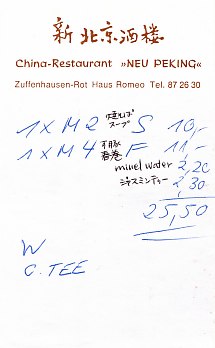 新北京酒楼
China-Restaurant »NEU PEKING«
Zuffenhausen-Rot Haus Romeo Tel. 87 26 30
焼そば
1 x M 2 スープ S 10,-
1 x M 4 春巻 F 11,-
minel water 2,20
ジャスミンティー 2,30
25,50
W
C. TEE